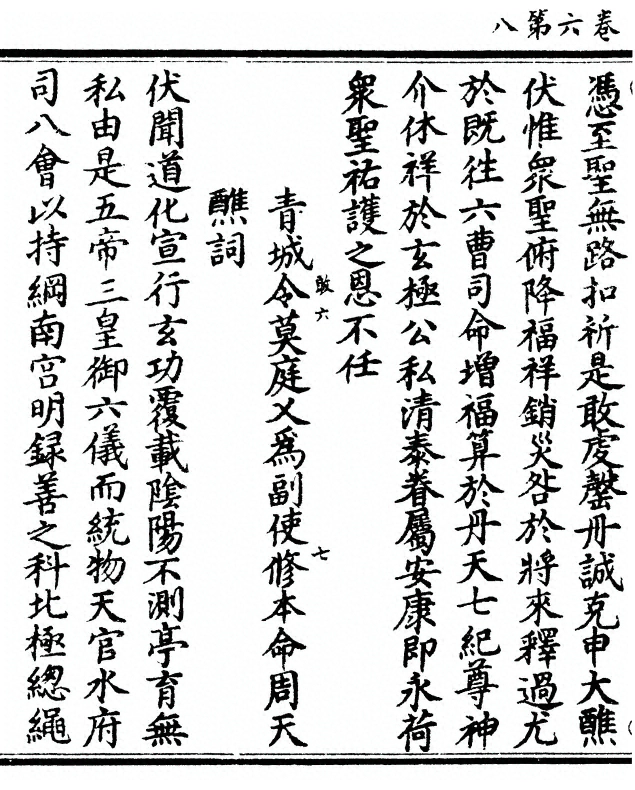 卷六第八
憑至聖無路扣祈是敢虔罄丹誠克申大醮
伏惟衆聖俯降福祥銷災咎於將來釋過尤
於既徃六曹司命增福算於丹天七紀尊神
介休祥於玄極公私清泰眷屬安康即永荷
衆聖祐護之恩不任
青城令莫庭乂爲副使修本命周天
敢六
七
醮詞
伏聞道化宣行玄功覆載陰陽不測亭育無
私由是五帝三皇御六儀而統物天官水府
司八會以持綱南宫明録善之科北極總繩